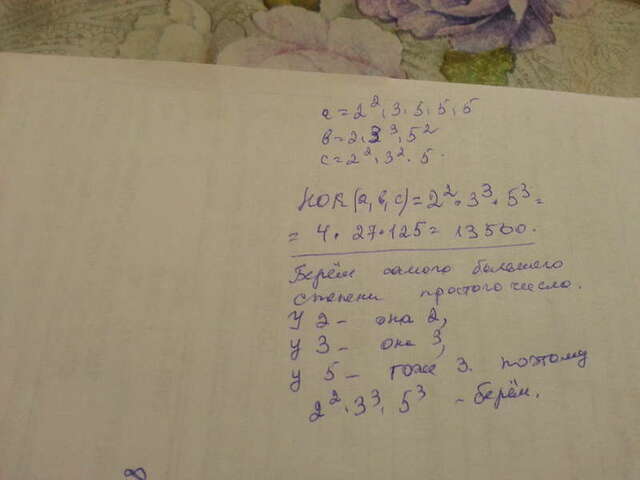 a = 2², 3, 5, 5, 5
в = 2, 3³, 5²
c = 2² · 3² · 5.
НОК (а, в, с) = 2² · 3³ · 5³ =
= 4 · 27 · 125 = 13500.
Берём самого большего
степени простого число.
У 2 – она 2,
у 3 – она 3,
у 5 – тоже 3. поэтому
2² · 3³, 5³ – берём.
8